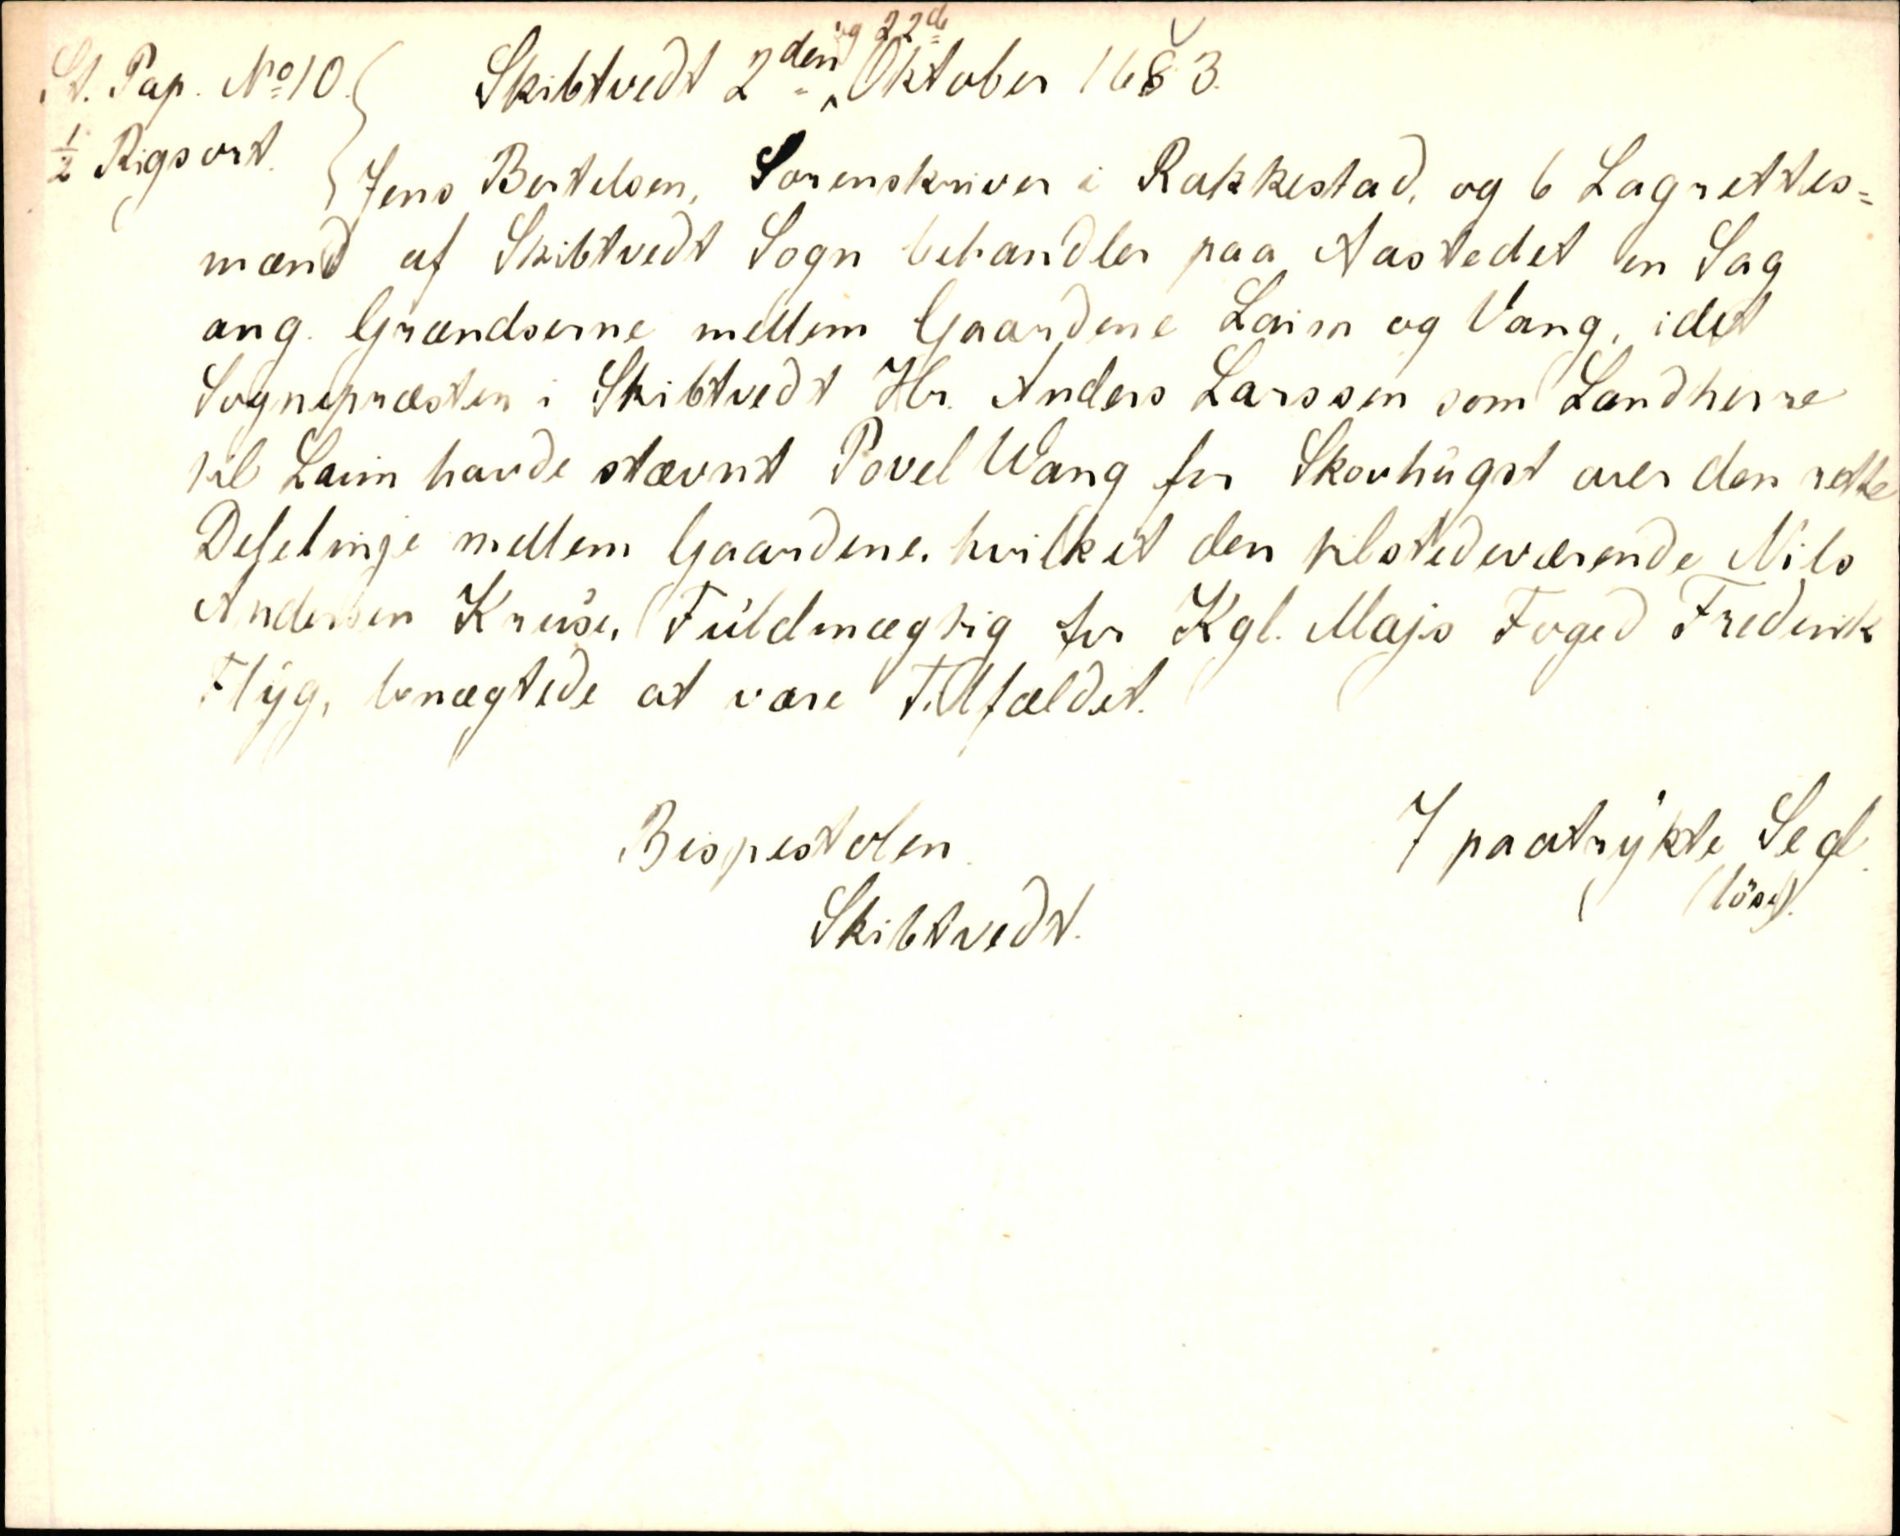 St. Pap. No 10. Skibtvedt 2den og 22de Oktober 1683.
½ Rigsort.
Jens Bertelsen, Sorenskriver i Rakkestad, og 6 Lagrettes=
mænd af Skibtvedt Sogn behandler paa Aastedet en Sag
ang. Grændserne mellem Gaardene Laim og Vang, idet
Sognepræsten i Skibtvedt Hr. Anders Larssen som Landherre
til Laim havde stævnt Povel Wang for Skovhugst over den rette
Delelinje mellem Gaardene, hvilket den tilstedeværende Nils
Andersen Kruse, Fuldmægtig for Kgl. Majs Foged Frederik
Flyg, benægtede at være Tilfældet.
Bispestolen. 7 paatrykte Segl.
(löse).
Skibtvedt.